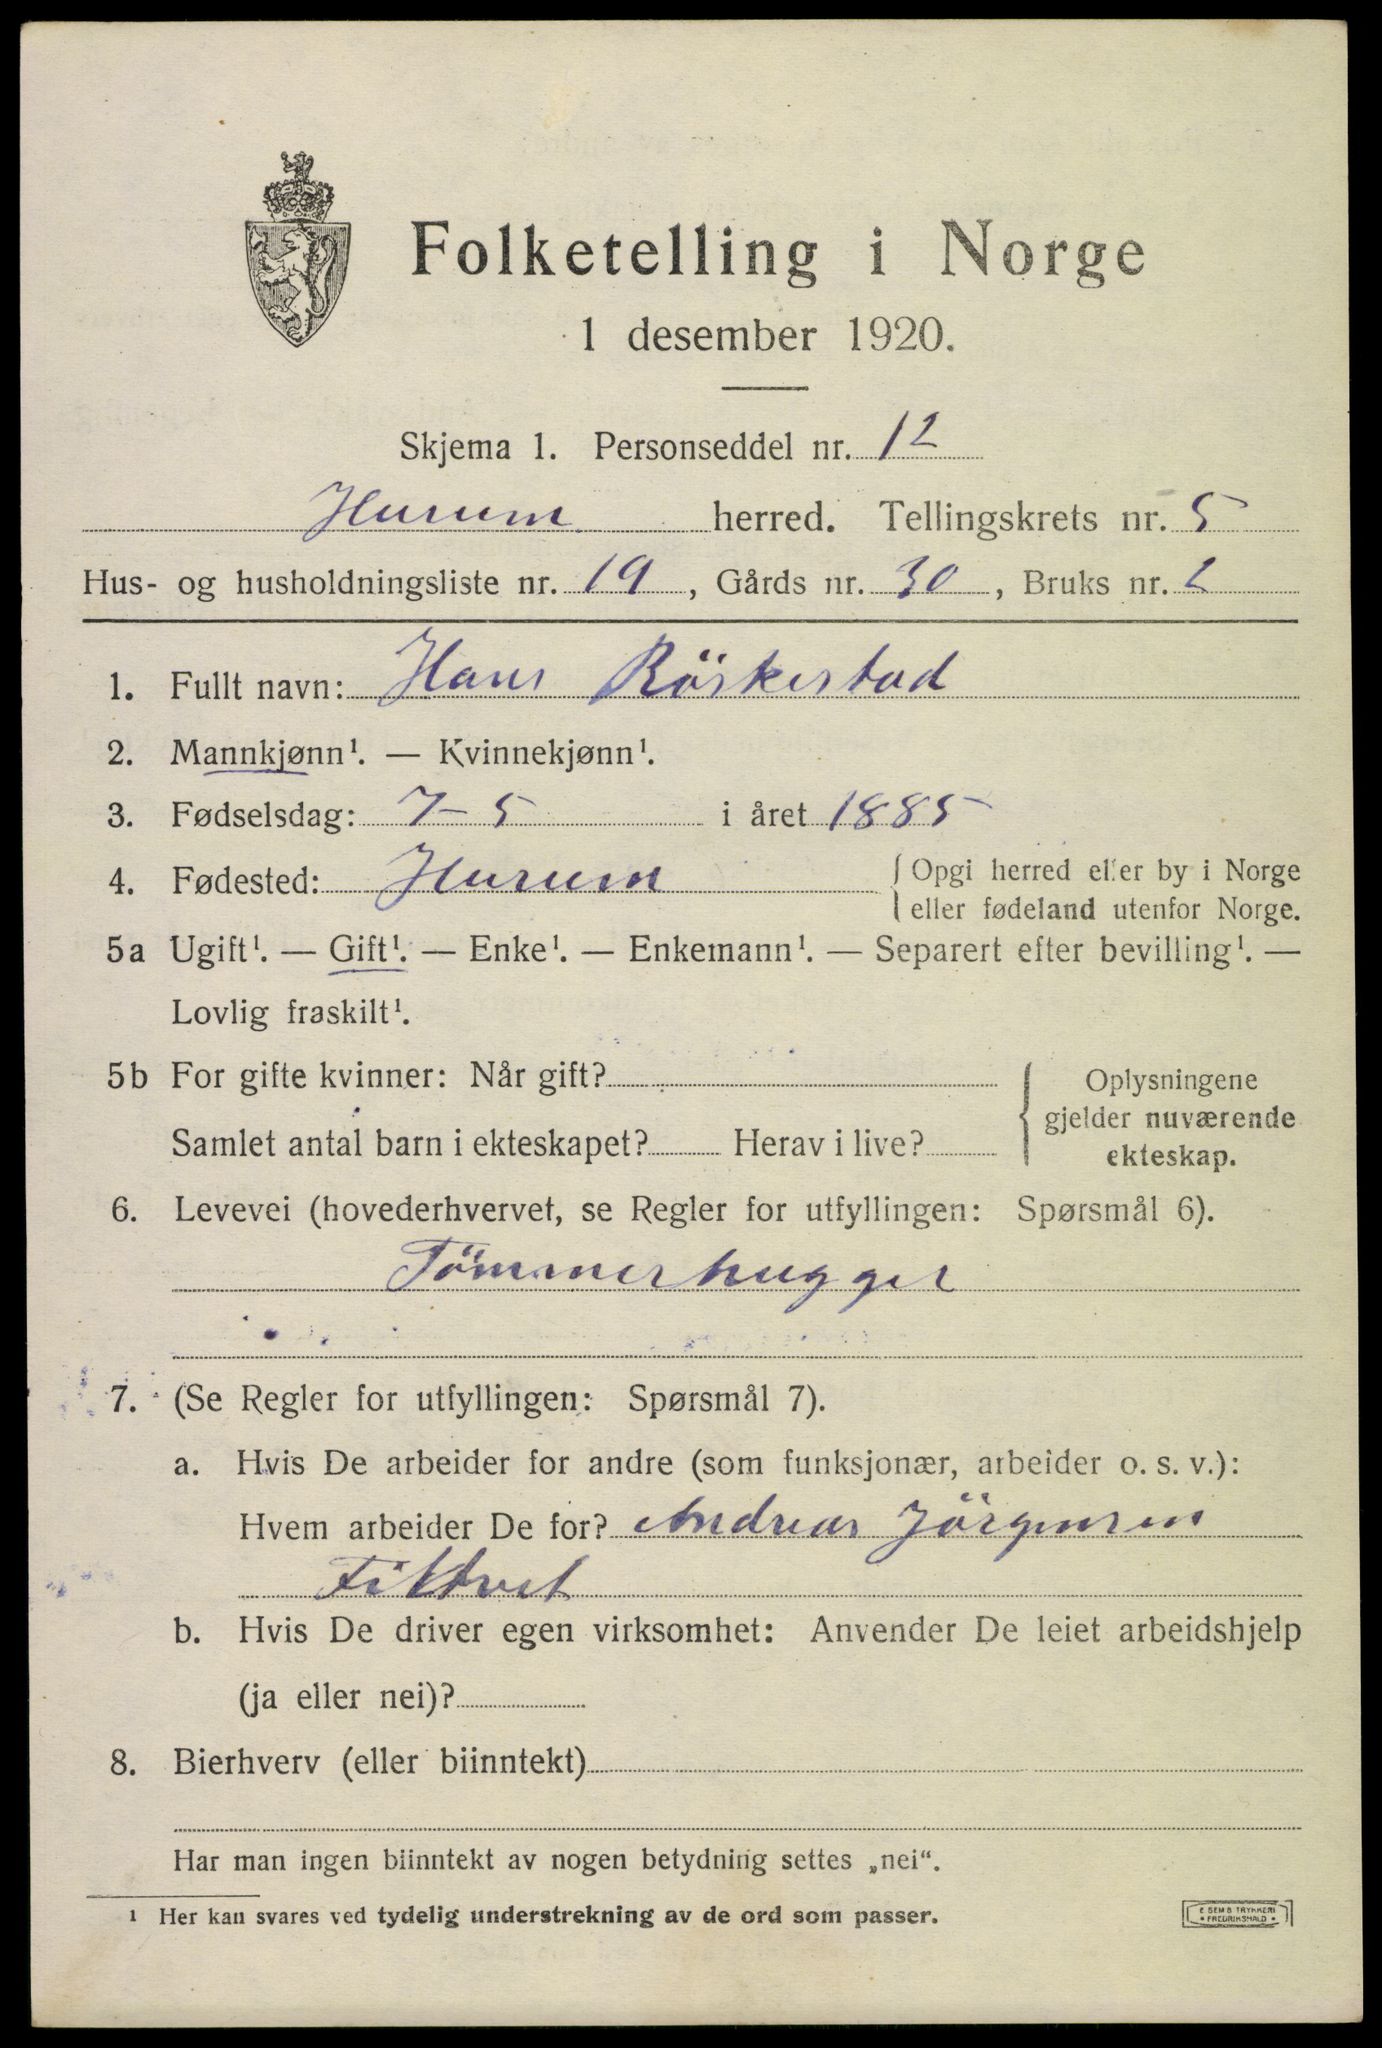 Folketelling i Norge
1 desember 1920.
Skjema 1. Personseddel nr. 12
Hurum herred. Tellingskrets nr. 5
Hus- og husholdningsliste nr. 19, Gårds nr. 30, Bruks nr. 2
1. Fullt navn: Hans Röskestad
2. Mannkjønn¹. — Kvinnekjønn¹.
3. Fødselsdag: 7-5 i året 1885
4. Fødested: Hurum { Opgi herred eller by i Norge
eller fødeland utenfor Norge.
5a Ugift¹. — Gift¹. — Enke¹. — Enkemann¹. — Separert efter bevilling¹. —
Lovlig fraskilt¹.
5b For gifte kvinner: Når gift? { Oplysningene
gjelder nuværende
Samlet antal barn i ekteskapet? Herav i live?
ekteskap.
6. Levevei (hovederhvervet, se Regler for utfyllingen: Spørsmål 6).
Tömmerhugger
7. (Se Regler for utfyllingen: Spørsmål 7).
a. Hvis De arbeider for andre (som funksjonær, arbeider o. s. v.):
Hvem arbeider De for? Andreas Jörgensen
Tiltvet
b. Hvis De driver egen virksomhet: Anvender De leiet arbeidshjelp
(ja eller nei)?
8. Bierhverv (eller biinntekt)
Har man ingen biinntekt av nogen betydning settes „nei“.
¹ Her kan svares ved tydelig understrekning av de ord som passer.
E SEMS TRYKKERI
• FREDRIKSHALD •